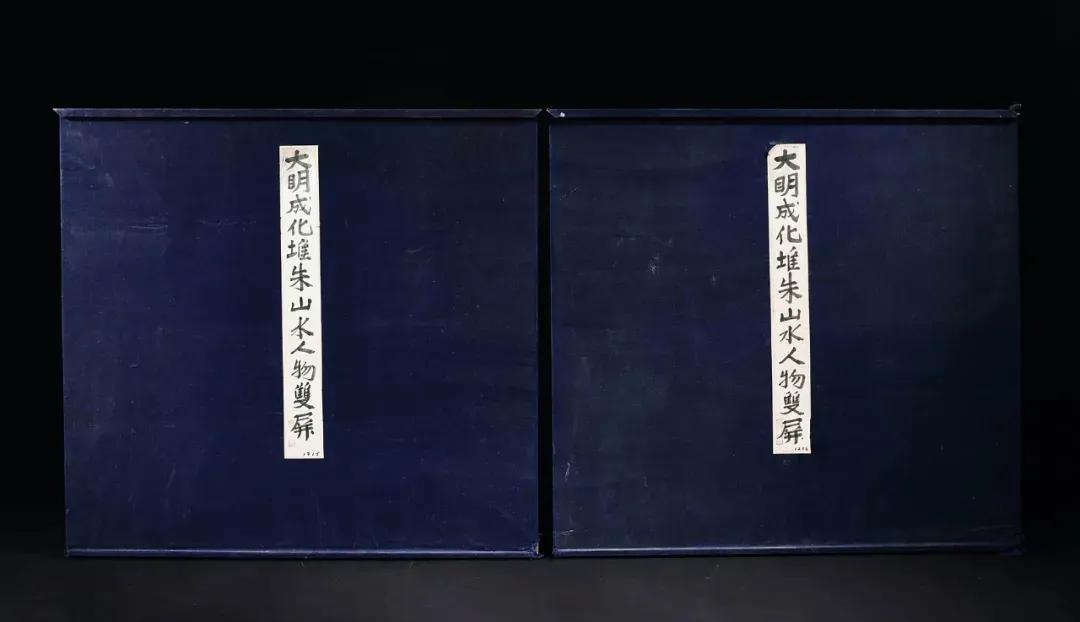 大明成化堆朱山水人物雙屏
1215
大明成化堆朱山水人物雙屏